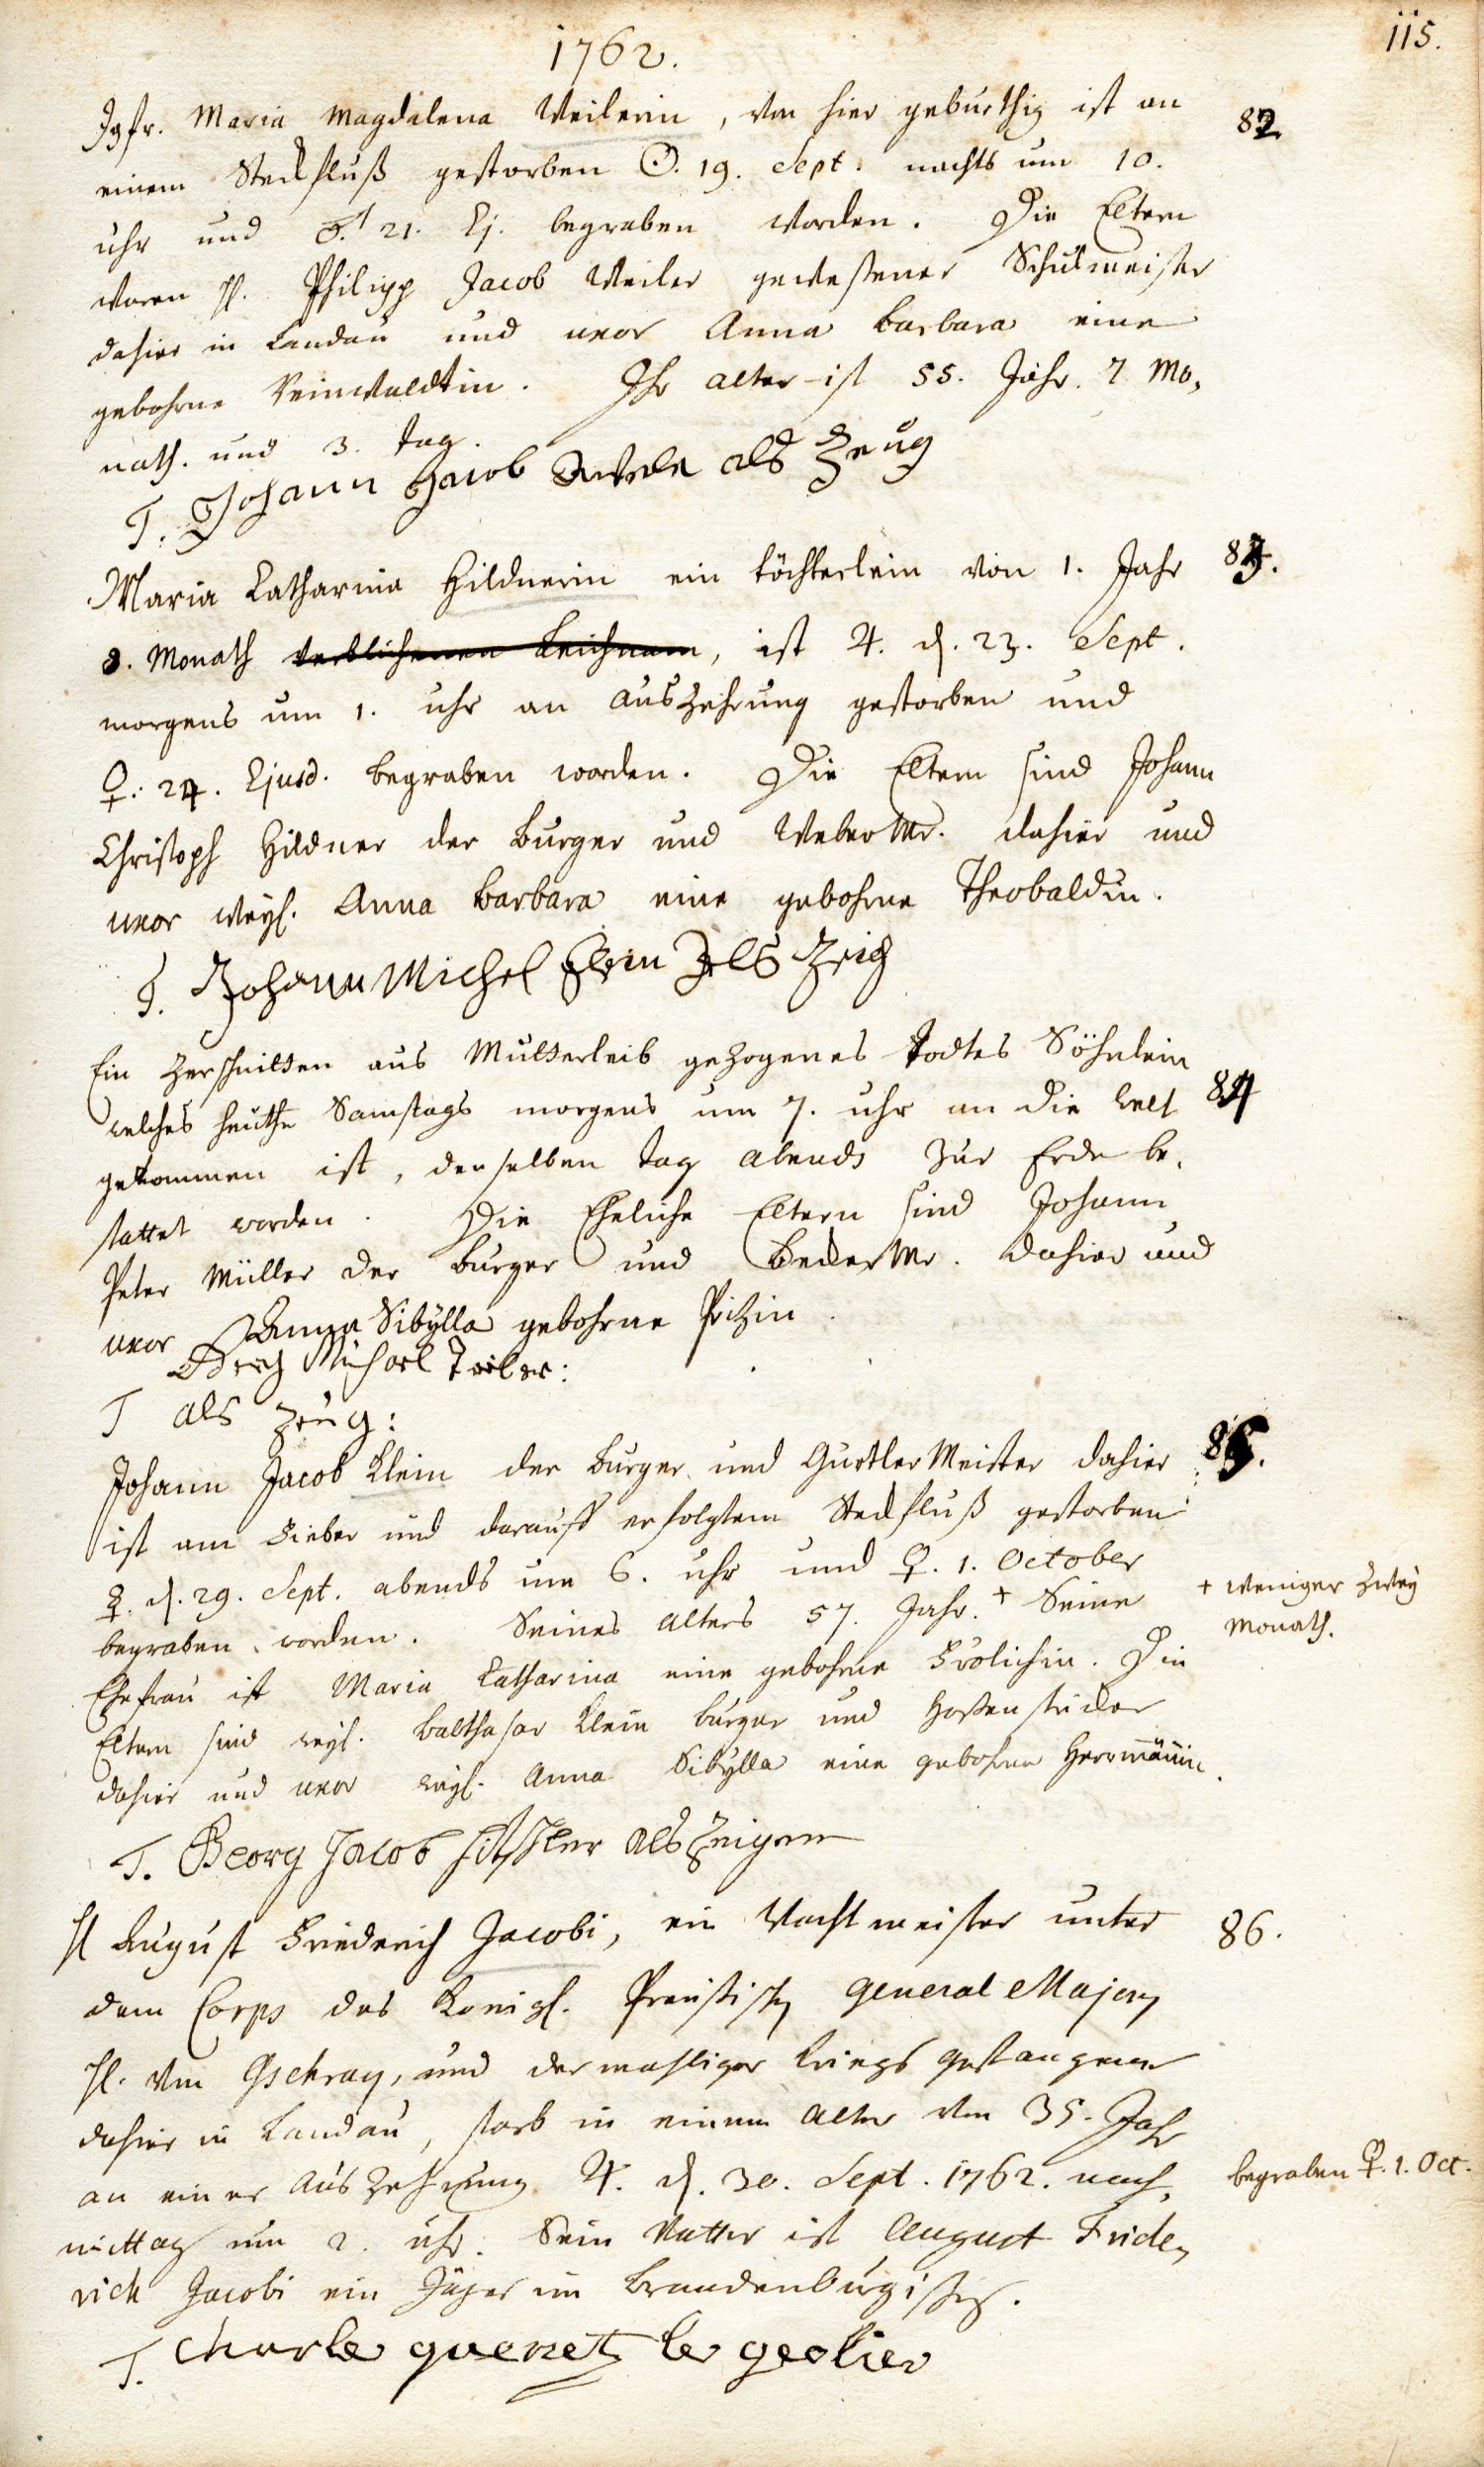 115.
1762.
Jgfr. Maria Magdalena Weilerin, von hier geburthig ist an
82
einem Steckfluß gestorben ☉. 19. Sept. nachts um 10.
uhr und ♂. 21. Ej. begraben worden. Die Eltern
waren H. Philipp Jacob Weiler gewesener Schulmeister
dahier in Landau und uxor Anna Barbara eine
gebohrne Reinwaldtin. Ihr alter ist 55. Jahr. 7 Mo,
nath. und 3. tag.
T. Johann Jacob als Zeug
Maria Catharina Hildnerin ein töchterlein von 1. Jahr
83.
8. Monath verblichenen Leichnam, ist ♃. d. 23. Sept.
morgens um 1. uhr an Auszehrung gestorben und
♀. 24. Ejusd. begraben worden. Die Eltern sind Johann
Christoph Hildner der Burger und Weber Mr. dahier und
uxor weyl. Anna Barbara eine gebohrne Theobaldin.
T. Johann Michel als Zeig
Ein Zerschnitten aus Mutterleib gezogenes Todtes Söhnlein
welches heuthe Samstags morgens um 7. uhr an die welt
84
gekommen ist, denselben tag abends zur Erde be,
stattet worden. Die Eheliche Eltern sind Johann
Peter Müller der Burger und Becker Mr. dahier und
uxor Anna Sibylla gebohrne
Michael
T als Zeug:
Johann Jacob Klein der Burger und Gurtler Meister dahier
85.
ist am Fieber und darauff erfolgtem Steckfluß gestorben
☿. d. 29. Sept. abends um 6. uhr und ♀. 1. October
begraben worden. Seines Alters 57. Jahr. + Seine
+ weniger zwey
Monath.
Ehefrau ist Maria Catharina eine gebohrne Frölichin. Die
Eltern sind weyl. Balthasar Klein burger und Hosenstricker
dahier und uxor weyl. Anna Sibylla eine gebohrne Herrmännin.
T. Georg Jacob als Zeigen
H August Friederich Jacobi, ein Wachtmeister unter
86.
dem Corps des Königl. Preußisch General Majors
H. von Gschray, und dermahliger Kriegs gefangener
dahier in Landau, starb in einem Alter von 35. Jahr
an einer Auszehrung ♃. d. 30. Sept. 1762. nach,
begraben ♀. 1. Oct.
mittag um 2. uhr. Sein Vatter ist August Fride,
rich Jacobi ein Jäger im Brandenburgischen.
T. Charle quenet le geolier